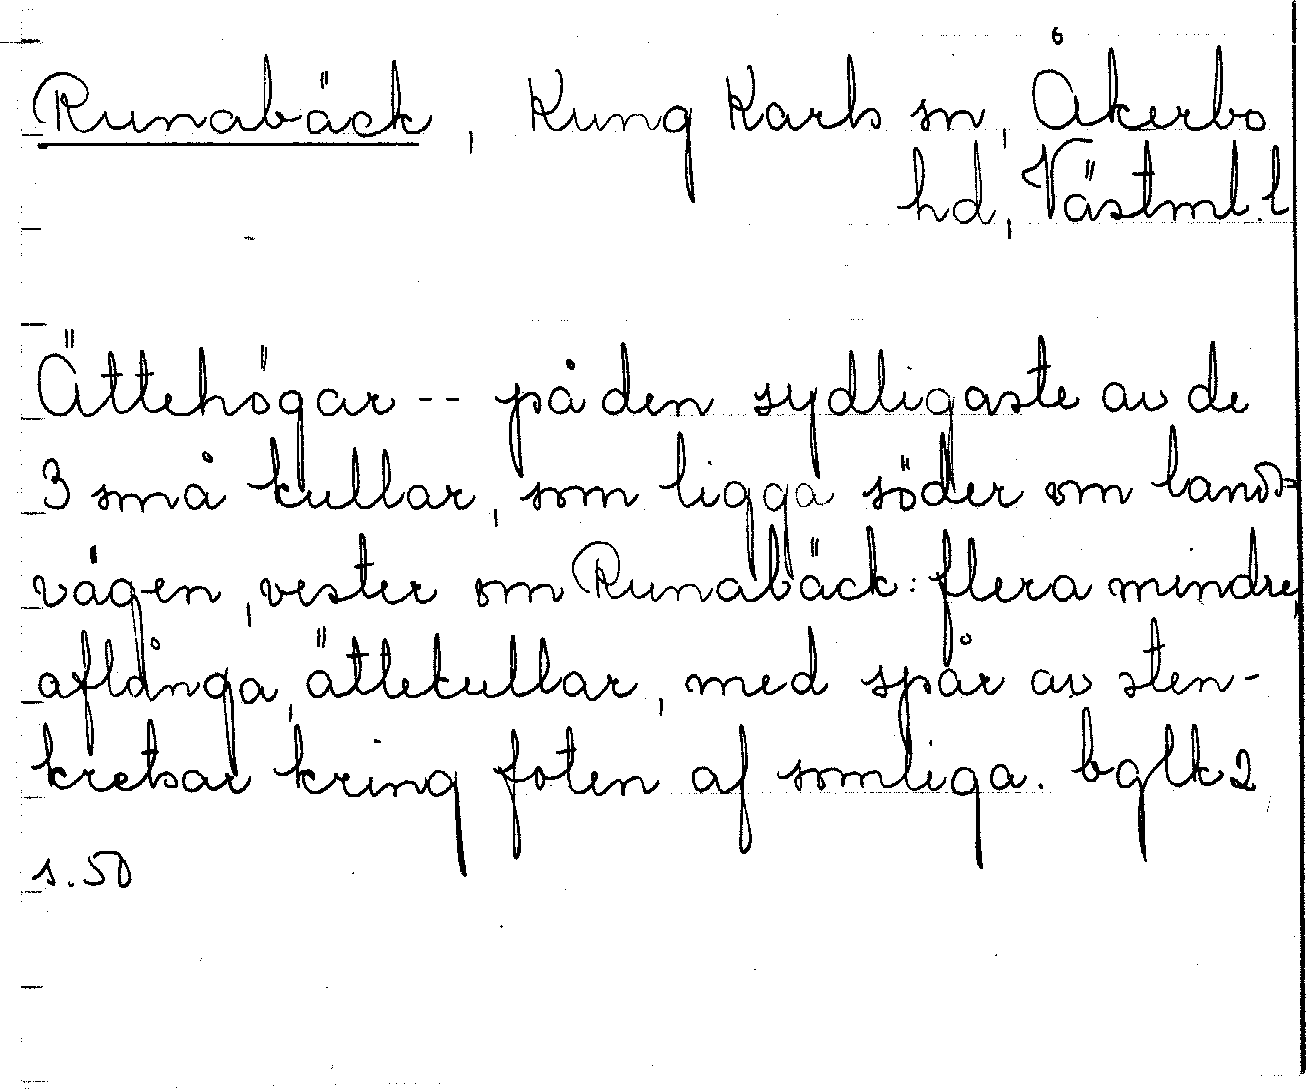 Runabäck, Kung Karls sn, Åkerbo
hd, Västml. l
Ättehögar -- på den sydligaste av de
3 små kullar, som ligga söder om lands=
vägen, vester om Runabäck: flera mindre
aflånga, ättekullar, med spår av sten-
kretsar kring foten af somliga. bglk 2
s. 50